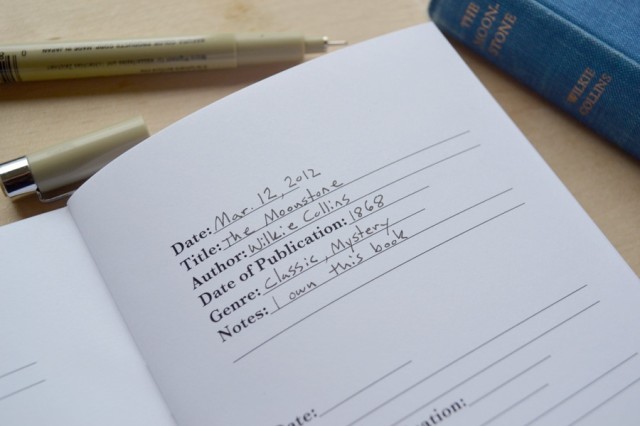 THE
MOON-
STONE
WILKIE
COLLINS
Date: Mar. 12, 2012
Title: The Moonstone
Author: Wilkie Collins
Date of Publication: 1868
Genre: Classic, Mystery
Notes: I own this book